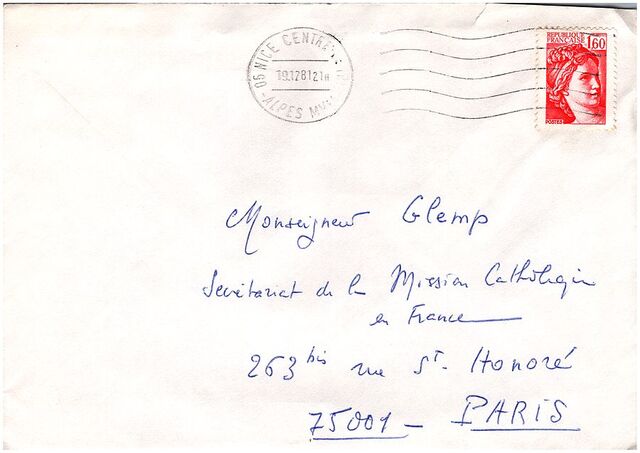 NICE CENTRE
06
19.12.81 21H
ALPES
REPUBLIQUE
FRANÇAISE
1,60
POSTES
Monseigneur Glemp
Secrétariat de la Mission Catholique
en France
263 bis rue St. Honoré
75001 - PARIS